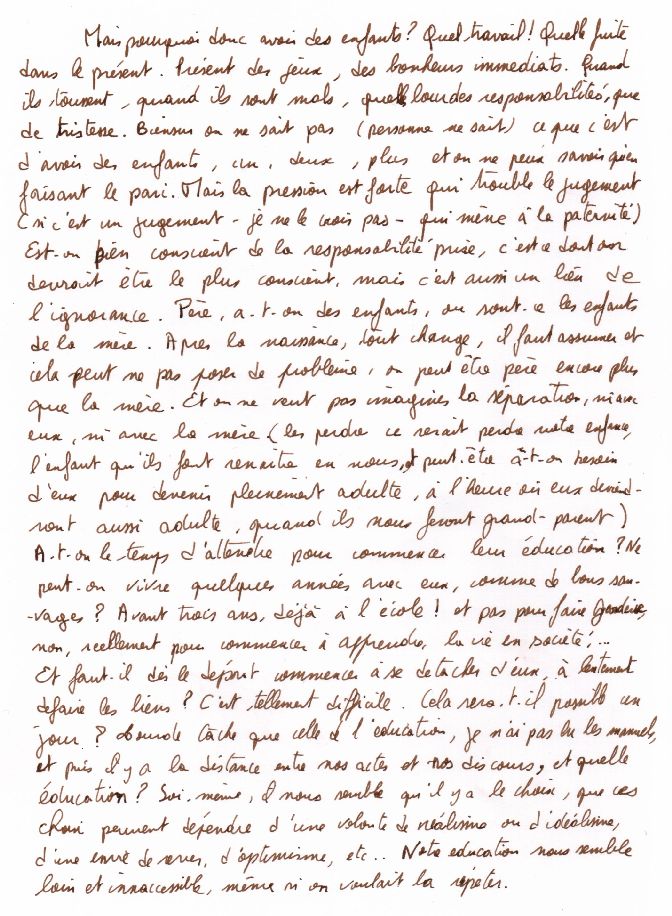 Mais pourquoi donc avoir des enfants? Quel travail! Quelle fuite
dans le présent. Présent des jeux, des bonheurs immediats. Quand
ils toussent, quand ils sont mals, quelle lourdes responsabilités, que
de tristesse. Biensur on ne sait pas (personne ne sait) ce que c'est
d'avoir des enfants, un, deux, plus et on ne peux savoir qu'en
faisant le pari. Mais la pression est forte qui trouble le jugement
(si c'est un jugement - je ne le crois pas - qui mène à la paternité)
Est-on bien conscient de la responsabilité prise, c'est ce dont on
devrait être le plus conscient, mais c'est aussi un lieu de
l'ignorance. Père, a-t-on des enfants, ou sont-ce les enfants
de la mère. Apres la naissance, tout change, il faut assumer et
cela peut ne pas poser de problème, on peut être père encore plus
que la mère. Et on ne veut pas imaginer la séparation, ni avec
eux, ni avec la mère (les perdre ce serait perdre notre enfance,
l'enfant qu'ils font renaitre en nous, et peut-être a-t-on besoin
d'eux pour devenir pleinement adulte, à l'heure où eux deviend-
ront aussi adulte, quand ils nous feront grand-parent)
A-t-on le temps d'attendre pour commencer leur éducation? Ne
peut-on vivre quelques années avec eux, comme de bons sau-
-vages? Avant trois ans, déjà à l'école! et pas pour faire garderie,
non, reellement pour commencer à apprendre, la vie en société,...
Et faut-il dès le départ commencer à se detacher d'eux, à lentement
defaire les liens? C'est tellement difficile. Cela sera-t-il possible un
jour? Lourde tâche que celle de l'éducation, je n'ai pas lu les manuels,
et puis il y a la distance entre nos actes et nos discours, et quelle
éducation? Soi-même, il nous semble qu'il y a le choix, que ces
choix peuvent dépendre d'une volonté de réalisme ou d'idéalisme,
d'une envie de rever, d'optimisme, etc.. Notre education nous semble
loin et innaccessible, même si on voulait la répéter.